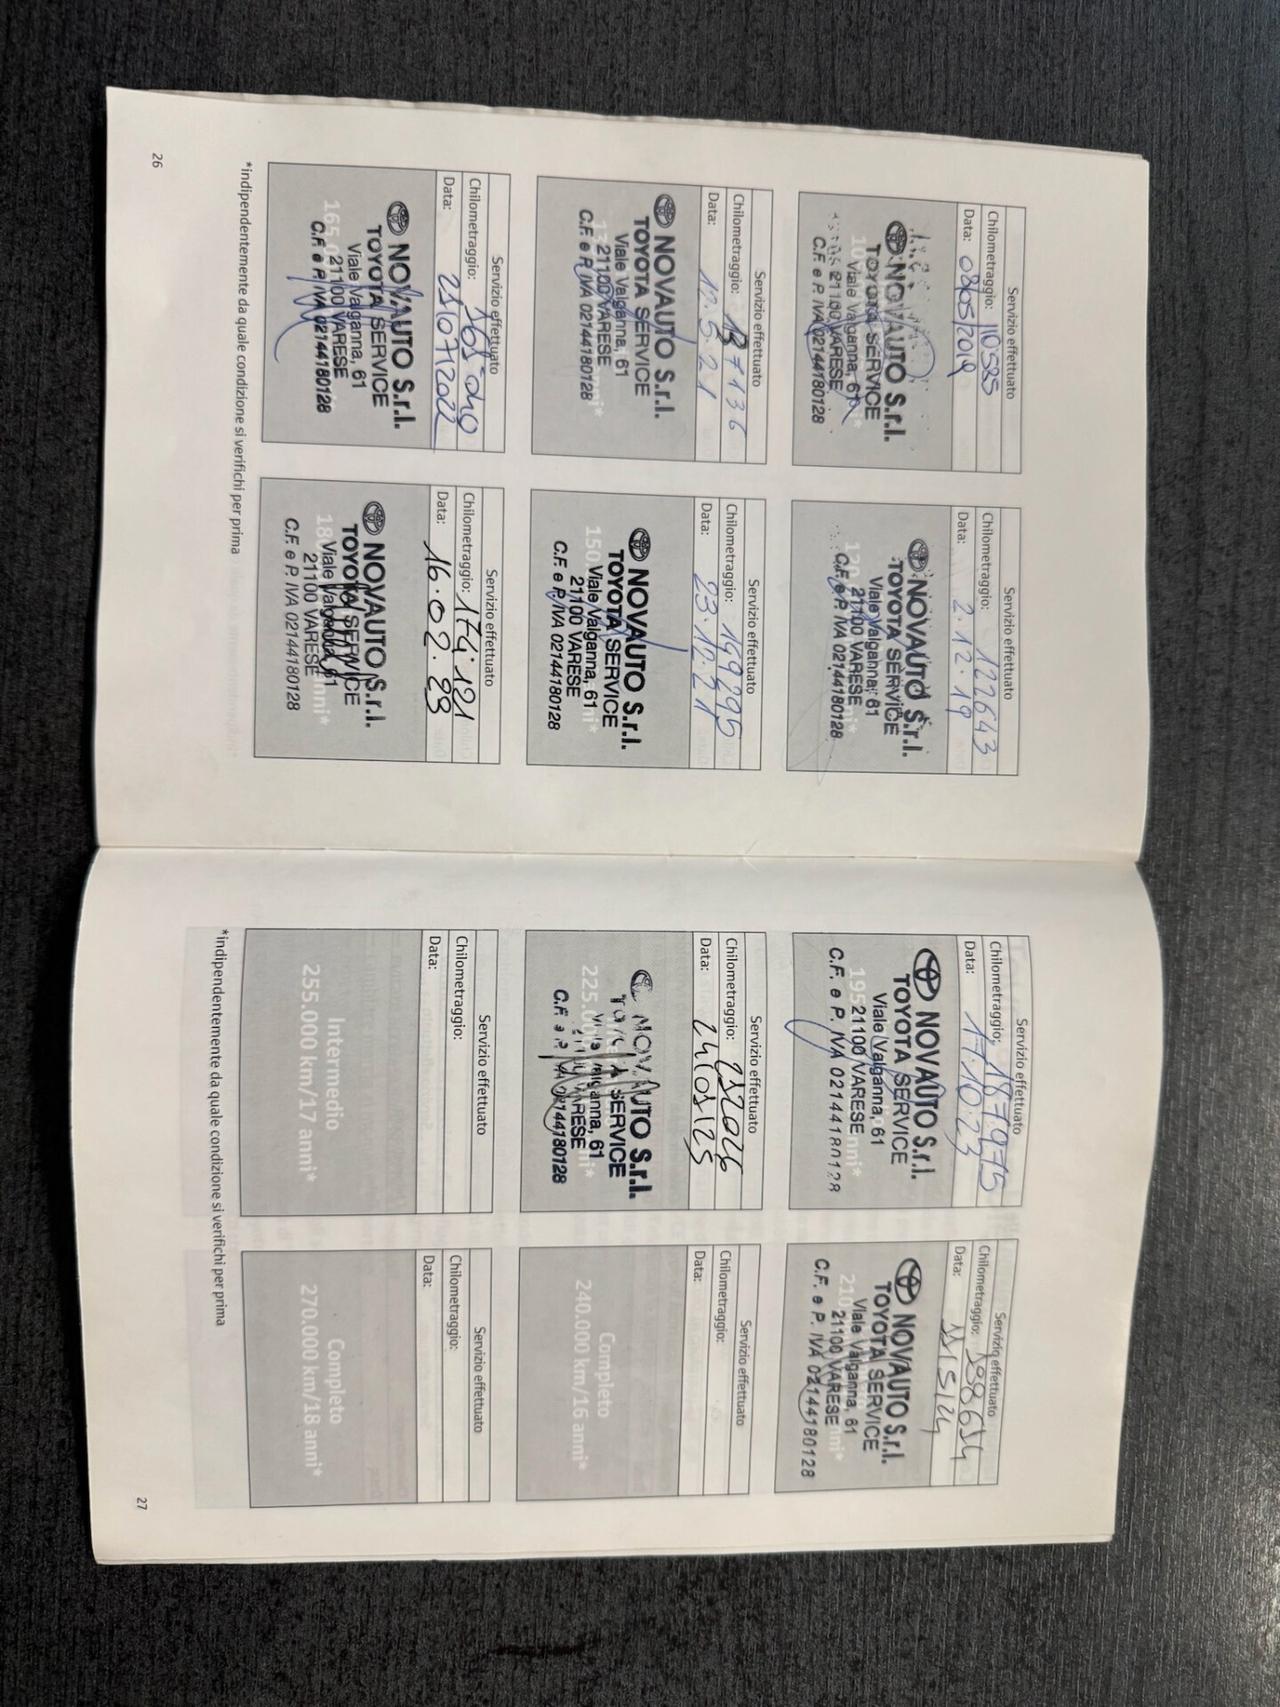 Servizio effettuato
Chilometraggio: 110535
Data: 08/05/2019
NOVAUTO S.r.l.
TOYOTA SERVICE
Viale Valganna, 61
21100 VARESE
C.F. e P. IVA 02144180128
Servizio effettuato
Chilometraggio: 122643
Data: 2.12.19
NOVAUTO S.r.l.
TOYOTA SERVICE
Viale Valganna, 61
21100 VARESE
C.F. e P. IVA 02144180128
Servizio effettuato
Chilometraggio: 137136
Data: 12.5.21
NOVAUTO S.r.l.
TOYOTA SERVICE
Viale Valganna, 61
21100 VARESE
C.F. e P. IVA 02144180128
Servizio effettuato
Chilometraggio: 149295
Data: 23.12.21
NOVAUTO S.r.l.
TOYOTA SERVICE
Viale Valganna, 61
21100 VARESE
C.F. e P. IVA 02144180128
Servizio effettuato
Chilometraggio: 165040
Data: 25/07/2022
NOVAUTO S.r.l.
TOYOTA SERVICE
Viale Valganna, 61
21100 VARESE
C.F. e P. IVA 02144180128
Servizio effettuato
Chilometraggio: 174.121
Data: 16.02.23
NOVAUTO S.r.l.
TOYOTA SERVICE
Viale Valganna, 61
21100 VARESE
C.F. e P. IVA 02144180128
*indipendentemente da quale condizione si verifichi per prima
26
Servizio effettuato
Chilometraggio: 187975
Data: 17.10.23
NOVAUTO S.r.l.
TOYOTA SERVICE
Viale Valganna, 61
21100 VARESE
C.F. e P. IVA 02144180128
Servizio effettuato
Chilometraggio: 198654
Data: 11/5/24
NOVAUTO S.r.l.
TOYOTA SERVICE
Viale Valganna, 61
21100 VARESE
C.F. e P. IVA 02144180128
Servizio effettuato
Chilometraggio: 212026
Data: 24/03/25
NOVAUTO S.r.l.
TOYOTA SERVICE
Viale Valganna, 61
21100 VARESE
C.F. e P. IVA 02144180128
Servizio effettuato
Chilometraggio:
Data:
Completo
240.000 km/16 anni*
Servizio effettuato
Chilometraggio:
Data:
Intermedio
255.000 km/17 anni*
Servizio effettuato
Chilometraggio:
Data:
Completo
270.000 km/18 anni*
*indipendentemente da quale condizione si verifichi per prima
27